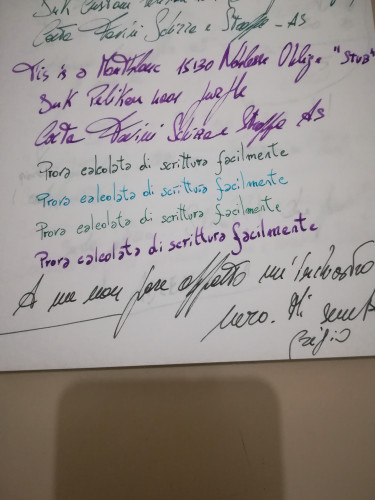 Carta Favini Schizza e Strappa - AS
This is a Montblanc 15130 Noblesse Oblige "STUB"
Ink Pelikan 4001 purple
Carta Favini Schizza e Strappa AS
Prova calcolata di scrittura facilmente
Prova calcolata di scrittura facilmente
Prova calcolata di scrittura facilmente
Prova calcolata di scrittura facilmente
A me non pare affatto un'inchiostro
nero. Mi sembra
grigio